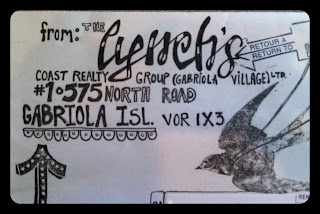 from: THE Lynch's
RETOUR À
RETURN TO
COAST REALTY GROUP (GABRIOLA VILLAGE) LTD.
#1•575 NORTH ROAD
GABRIOLA ISL. V0R 1X3